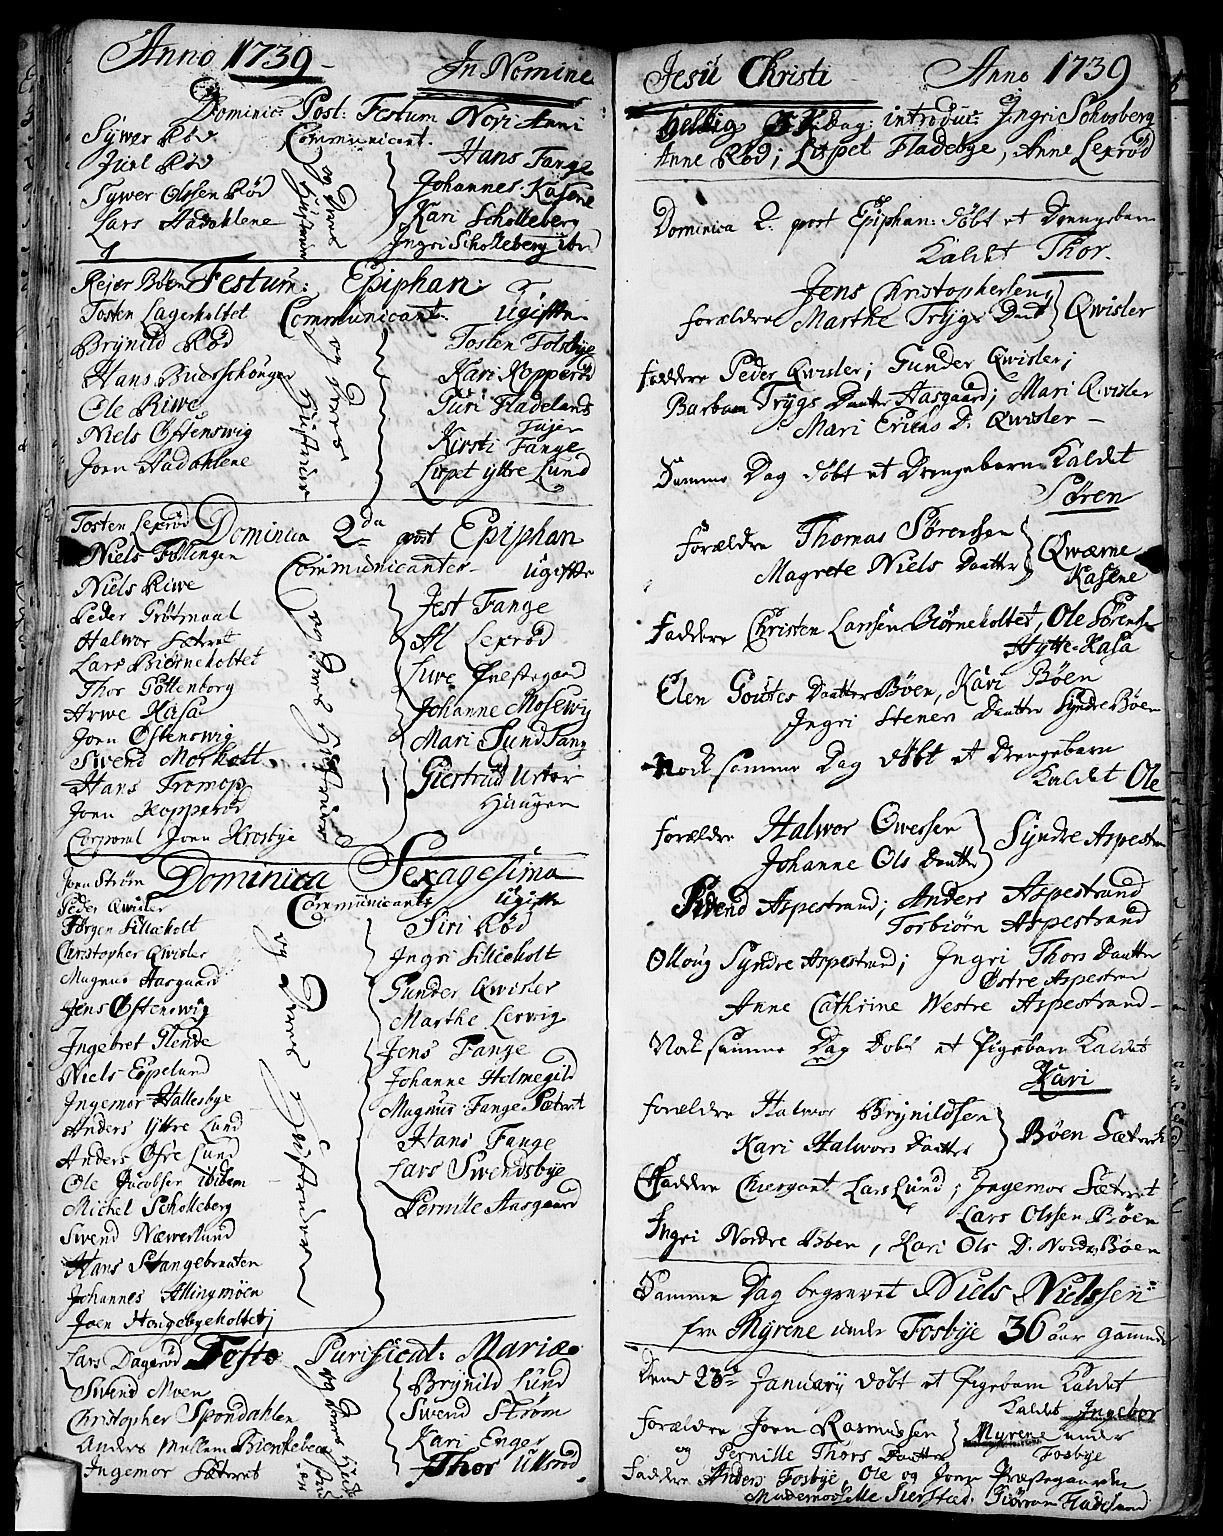 Anno 1739
In Nomine
Dominic: Post: Festum Novi Anni
Communicant.
Sywer Rød
Juel Rød
Sywer Olssen Rød
Lars Aadahlene
og Deres Hustruer
Hans Fange
Johannes Kasene
Kari Scholleberg
Ingri Scholleberg ibd
Rejer Bøen Festum: Epiphan:
Tosten Lagerholtet Communicant: Ugifte
Brynild Rød
Hans Buerschonger
Ole Riwe
Niels Østenswig
Joen Aadahlene
og Deres Hustruer
Tosten Folsbye
Kari Kopperød
Guri Fladelands
Fajer
Kirsti Fange
Lispet Yttre Lund
Tosten Lexrød Dominica 2da post Epiphan
Niels Föllingen Communicanter Ugifte
Niels Riwe
Peder Grøtmaal
Halwor Sætret
Lars Biørneholtet
Thor Gottenborg
Arwe Kasa
Joen Østenswig
Swend Morkolt
Hans Tromop
Joen Kopperød
Corporal Joen Krosbye
og Deres Hustruer
Jest Fange
Al Lexrød
Siwe Præstegaard
Johanne Mosewig
Mari Sund Fang
Giertrud Urter
Haugen
Joen Strøm Dominica Sexagesima
Peder Qwisler Communicants Ugifte
Jørgen Silleholt
Christopher Qwisler
Magnus Aasgaard
Jens Østenswig
Ingebret Glende
Niels Espelund
Ingemor Hallesbye
Anders Yttre Lund
Anders Øfre Lund
Ole Jacobser ibidem
Michel Scholleberg
Swend Næwerlund
Hans Stangebraaten
Johannes Allingmoen
Joen Haugebyeholtet
og Deres Hustruer
Siri Rød
Ingri Silleholt
Gunder Qwisler
Marthe Lerwig
Jens Fange
Johanne Holmegild
Magnus Fange Sætret
Hans Fange
Lars Swendsbye
Pernille Aasgaard
Lars Dagerød Festo Purificat: Mariæ
Swend Moen
Christopher Spondahlen
Anders Mellem Bierkebec
Ingemor Sætret
og Deres
Brynild Lund
Swend Strøm
Kari Enger
Thor Ulsrød
Jesu Christi Anno 1739
Hellig 3 K: Dag: introduc: Ingri Schosberg
Anne Rød; Lispet Fladebye, Anne Lexrød
Dominica 2. post Epiphan: døbt et Drengebarn
Kaldet Thor.
Jens Christophersen
forældre Marthe Trygs Daat Qwisler
Faddere Peder Qwisler; Gunder Qwisler;
Barbara Trygs Daatter Aasgaard; Mari Qwisler
Mari Erichs D. Qwisler
Samme Dag døbt et Drengebarn Kaldet
Søren
Forældre Thomas Sørenssen
Magrete Niels Daatter Qwærne
Kasene
Faddere Christen Larsen Biørneholtet, Ole Sørens
Hytte-Kasa
Elen Goutes Daatter Bøen, Kari Bøen
Ingri Steners Daatter Syndre Bøen
Nock samme Dag døbt et Drengebarn
Kaldet Ole
Forældre Halwor Owessen
Johanne Ols Daatter Syndre Aspestran
Swend Aspestrand; Anders Aspestrand
Torbiørn Aspestrand
Olloug Syndre Aspestrand; Ingri Thors Daatter
Østre Aspestran
Anne Cathrine Westre Aspestrand
Nock samme Dag Døbt et Pigebarn Kaldet
Kari
forældre Halwor Brynildsen
Kari Halwors Daatter Bøen Sæteret
Faddere Chiergant Lars Lund; Ingemor Sætret
Lars Olssen Bøen
Ingri Nordre Bøen, Kari Ols D. Nordre Bøen
Samme Dag begravet Niels Nielssen
fra Myrene under Fosbye 36 aar gammel
Dend 23de January døbt et Pigebarn Kaldet
Kaldet Ingebor
Forældre Joen Rasmussen Myrene under
og Pernille Thors Daatter Fosbye
Faddere Anders Fosbye, Ole og Joen Præstegaarden
Mademoiselle Sierstad, Giørran Fladeland